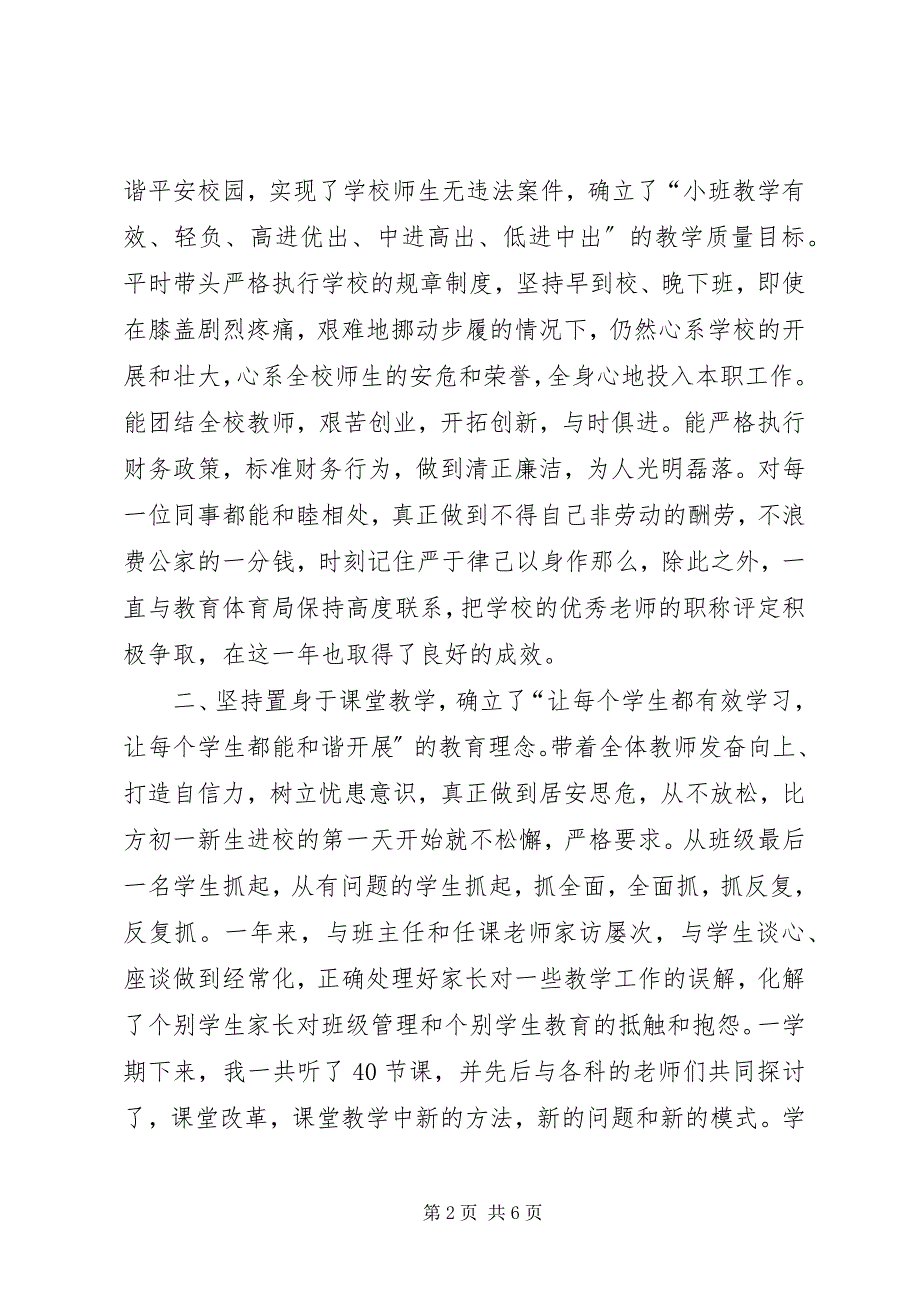 谐平安校园，实现了学校师生无违法案件，确立了“小班教学有
效、轻负、高进优出、中进高出、低进中出〞的教学质量目标。
平时带头严格执行学校的规章制度，坚持早到校、晚下班，即使
在膝盖剧烈疼痛，艰难地挪动步履的情况下，仍然心系学校的开
展和壮大，心系全校师生的安危和荣誉，全身心地投入本职工作。
能团结全校教师，艰苦创业，开拓创新，与时俱进。能严格执行
财务政策，标准财务行为，做到清正廉洁，为人光明磊落。对每
一位同事都能和睦相处，真正做到不得自己非劳动的酬劳，不浪
费公家的一分钱，时刻记住严于律己以身作那么，除此之外，一
直与教育体育局保持高度联系，把学校的优秀老师的职称评定积
极争取，在这一年也取得了良好的成效。
二、坚持置身于课堂教学，确立了“让每个学生都有效学习，
让每个学生都能和谐开展〞的教育理念。带着全体教师发奋向上、
打造自信力，树立忧患意识，真正做到居安思危，从不放松，比
方初一新生进校的第一天开始就不松懈，严格要求。从班级最后
一名学生抓起，从有问题的学生抓起，抓全面，全面抓，抓反复，
反复抓。一年来，与班主任和任课老师家访屡次，与学生谈心、
座谈做到经常化，正确处理好家长对一些教学工作的误解，化解
了个别学生家长对班级管理和个别学生教育的抵触和抱怨。一学
期下来，我一共听了 40 节课，并先后与各科的老师们共同探讨
了，课堂改革，课堂教学中新的方法，新的问题和新的模式。学
第 2 页 共 6 页